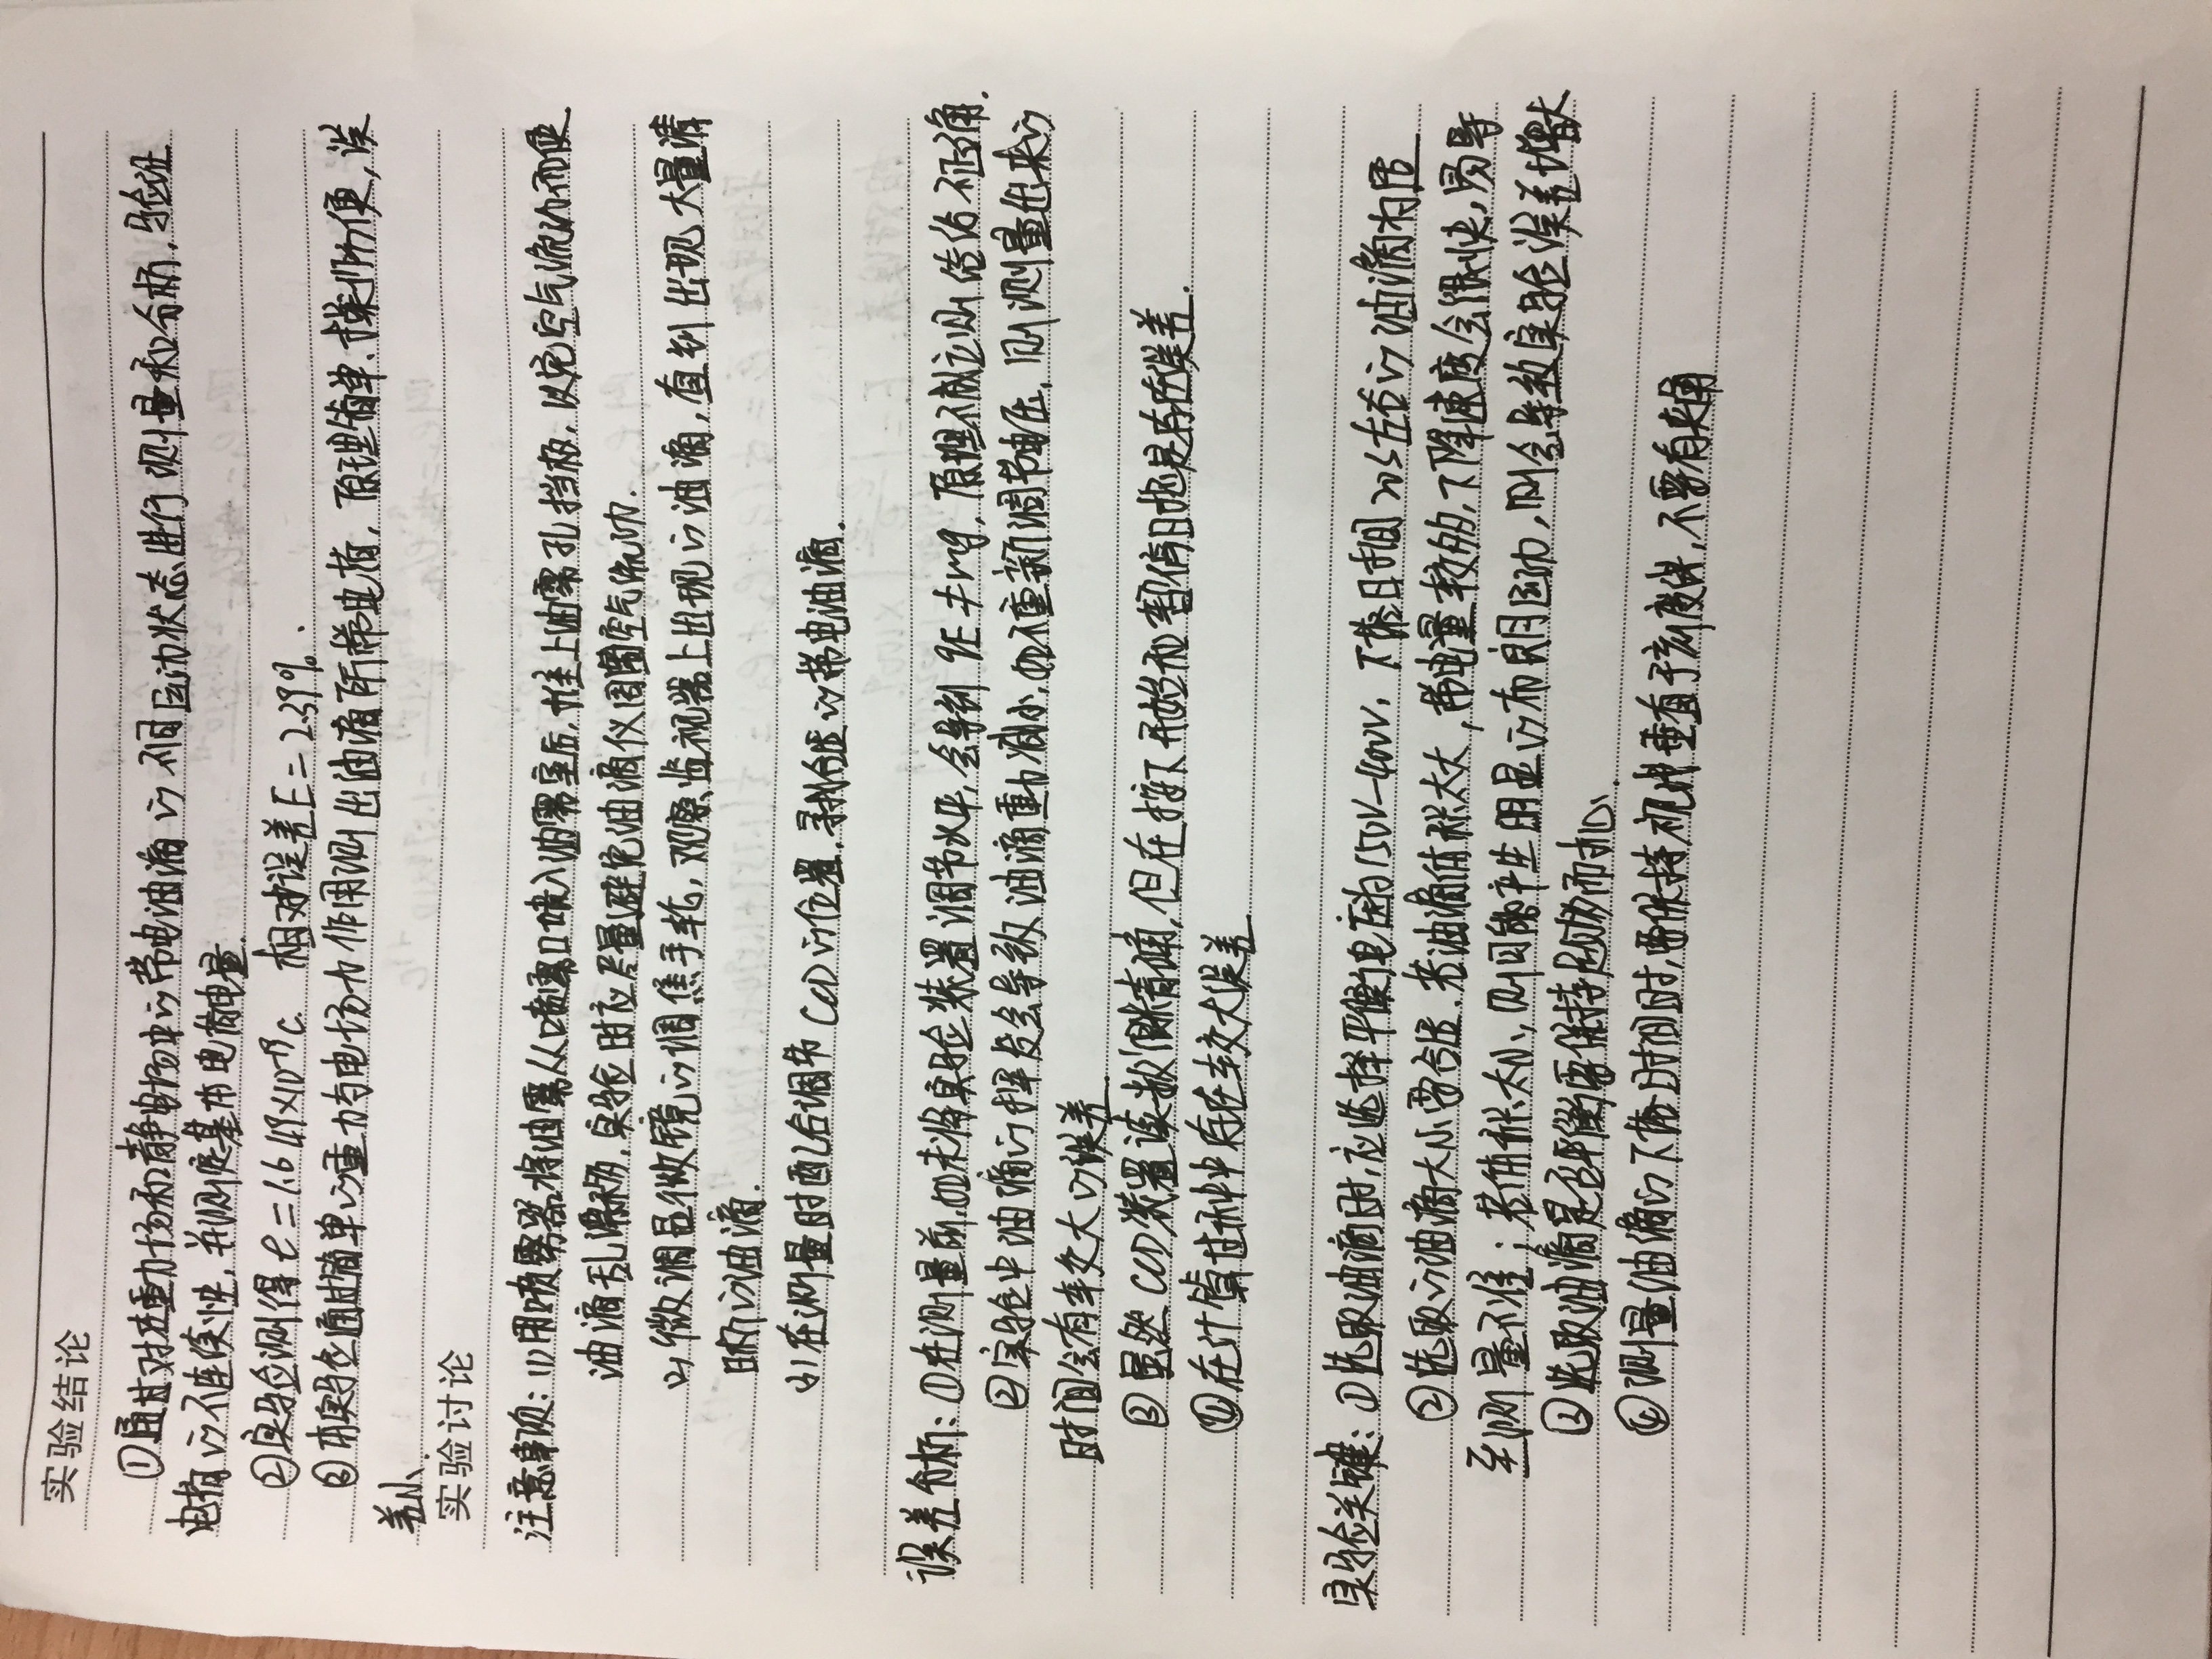 实验结论
①通过对在重力场和静电场中的带电油滴的不同运动状态进行测量和分析,验证
电荷的不连续性,并测定基本电荷电量.
②实验测得 e=1.649×10⁻¹⁹c. 相对误差E=2.39%.
③本实验通过简单的重力与电场力作用测出油滴所带电荷,原理简单、操作方便,误
差小.
实验讨论
注意事项:(1)用喷雾器将油雾从喷雾口喷入油雾室后,推上油雾孔挡板,以免空气流动而使
油滴乱漂移,实验时应尽量避免油滴仪周围空气流动.
(2)微调显微镜的调焦手轮,观察监视器上出现的油滴,直到出现大量清
晰的油滴.
(3)在测量时配合调节CCD的位置,寻找合适的带电油滴.
误差分析:①在测量前,如未将实验装置调节水平,会导致qE≠mg,原理不成立,则结论不正确.
②实验中油滴的挥发会导致油滴重力减小,如不重新调节电压,则测量出来的
时间会有较大的误差
③虽然CCD装置读数很精确,但在按下开始和暂停时也是存在误差.
④在计算过程中存在较大误差
实验关键:①选取油滴时,应选择平衡电压为150V-400V,下落时间20s左右的油滴为宜
②选取的油滴大小要合适.若油滴体积太大,带电量较多的,下降速度会很快,易导
至测量不准;若体积太小,则可能产生明显的布朗运动,则会导致实验误差增大
③选取油滴是否平衡需保持足够耐心.
④测量油滴的下落时间时,要保持视线垂直于刻度线,不要有夹角